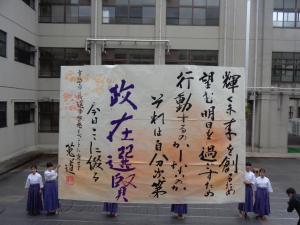 輝く未来を創るため
望む明日を過ごすため
行動するのかしないか
それは自分次第
政在選賢
今日ここに綴る